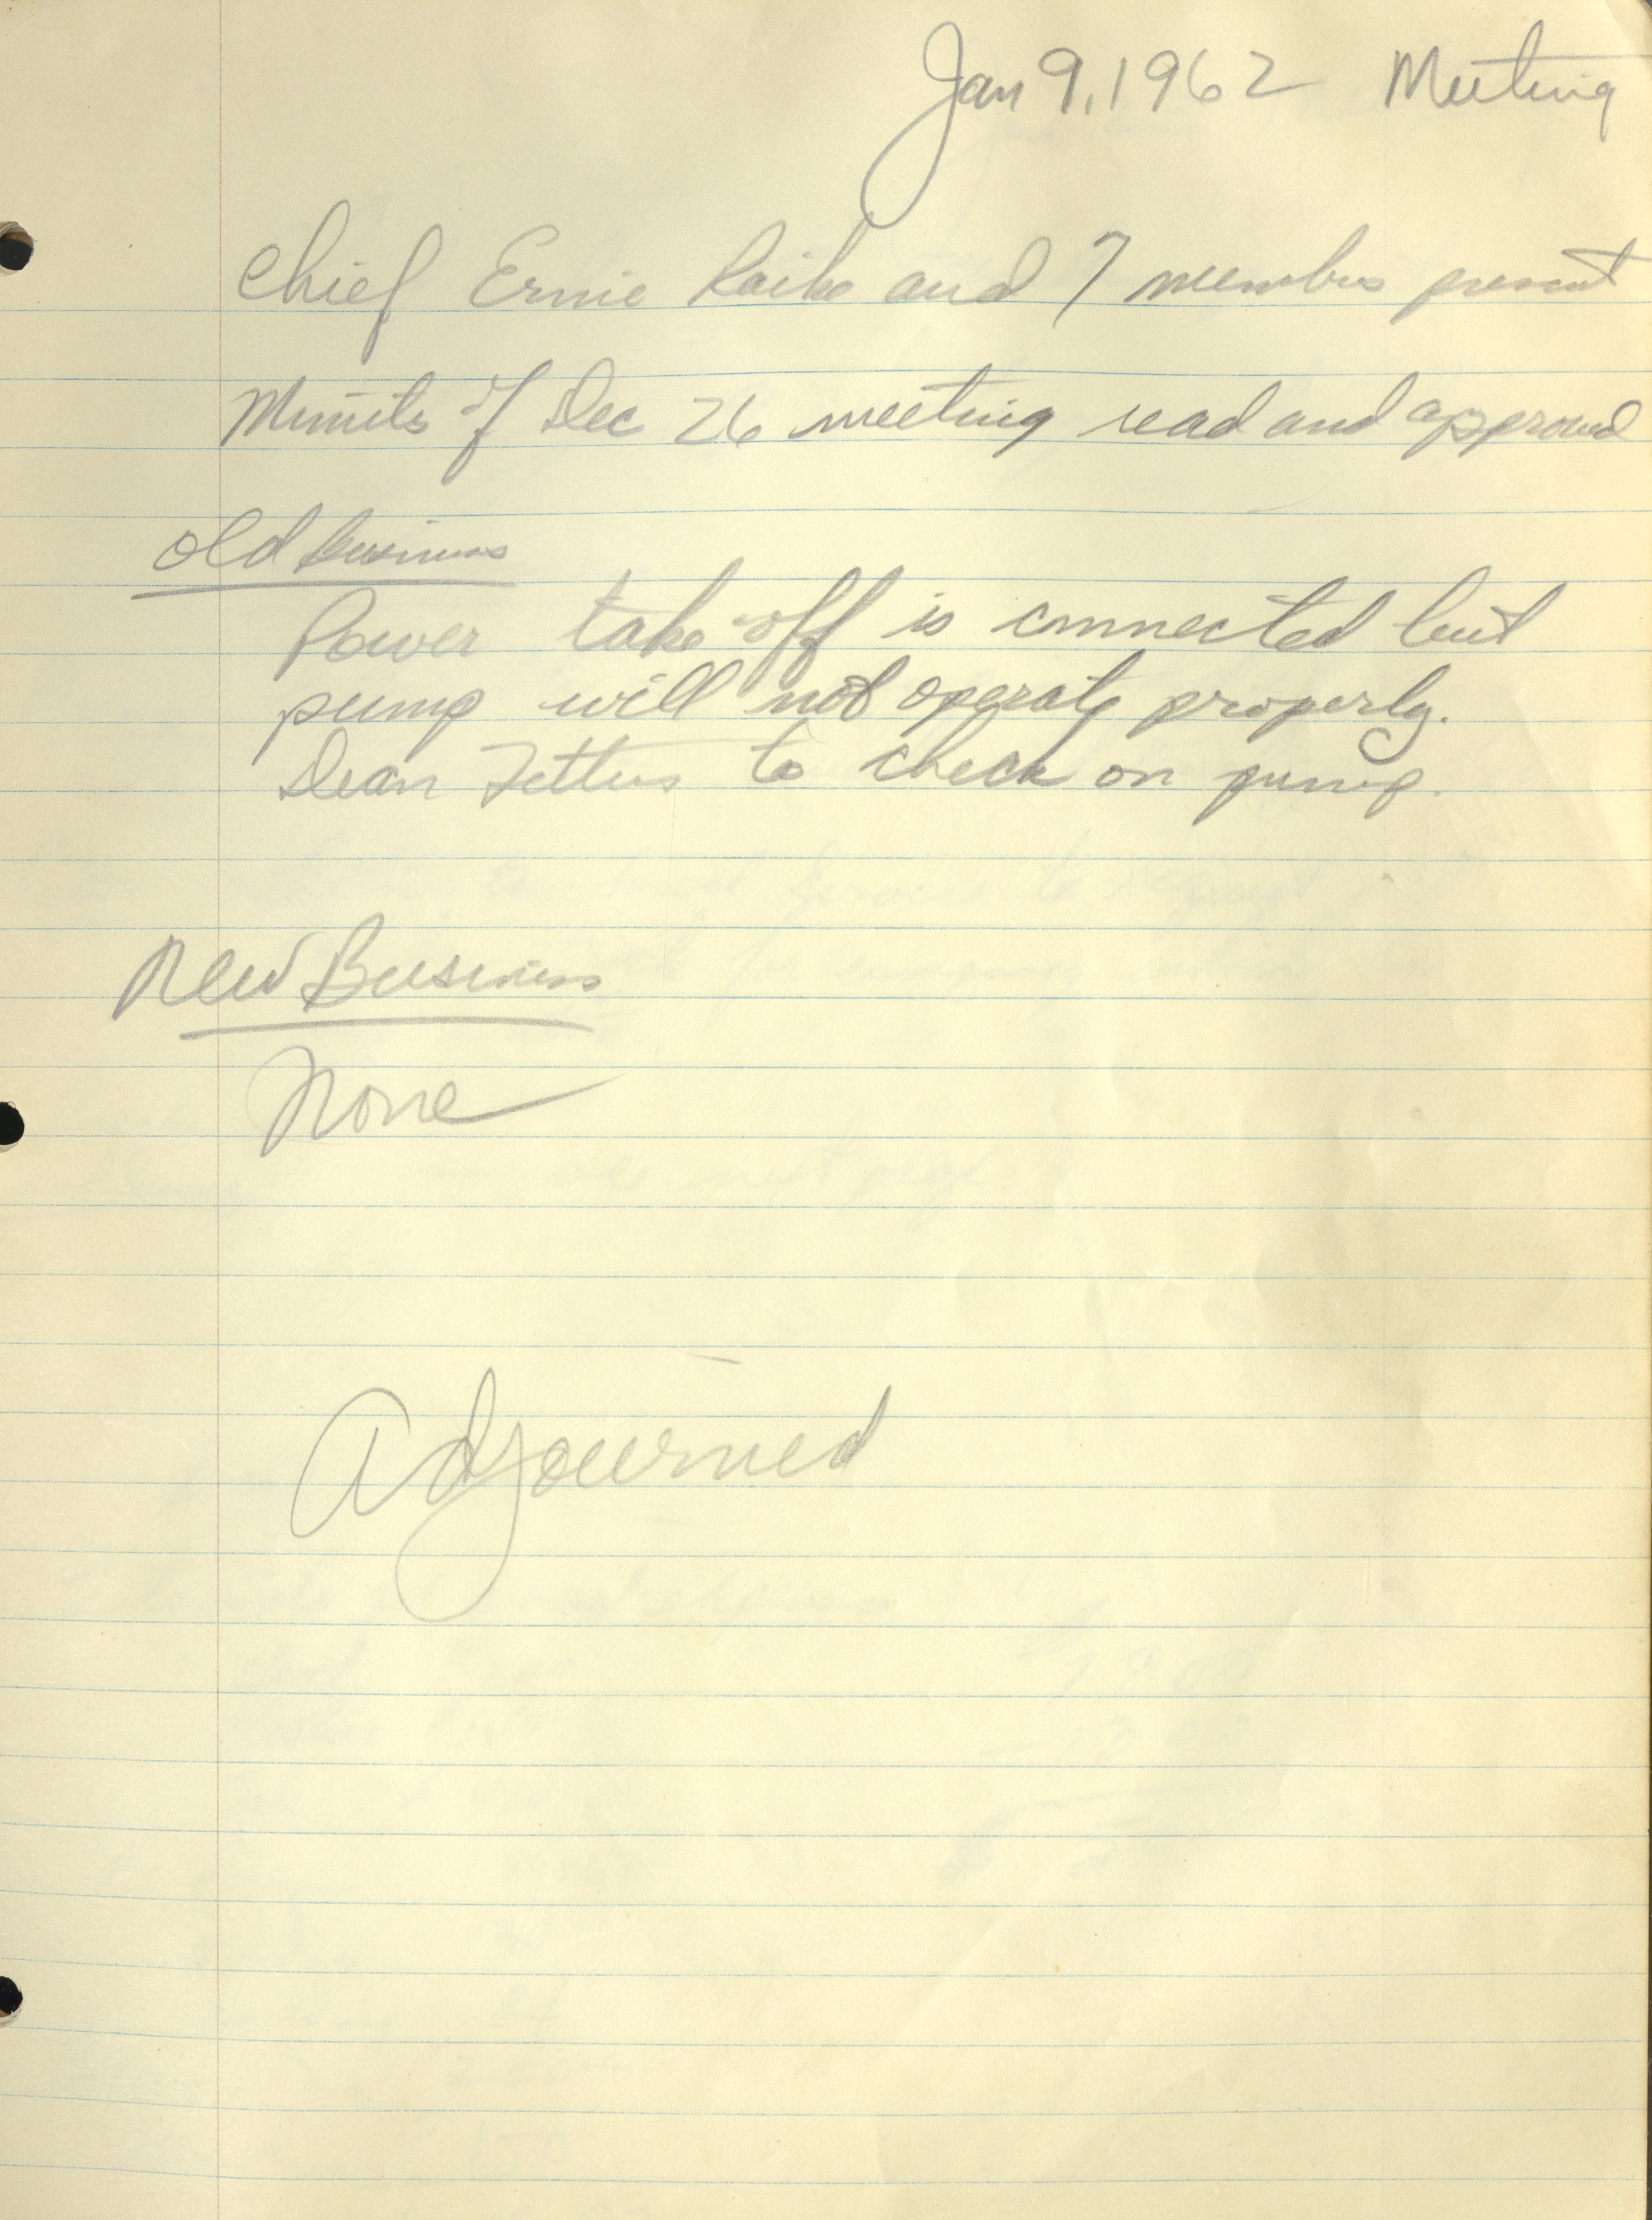 Jan 9, 1962 Meeting
Chief Ernie Raike and 7 members present
Minuits of Dec 26 meeting read and approved
Old Business
Power take-off is connected but
pump will not operate properly.
Dean Fetters to check on pump.
New Business
None
Adjourned